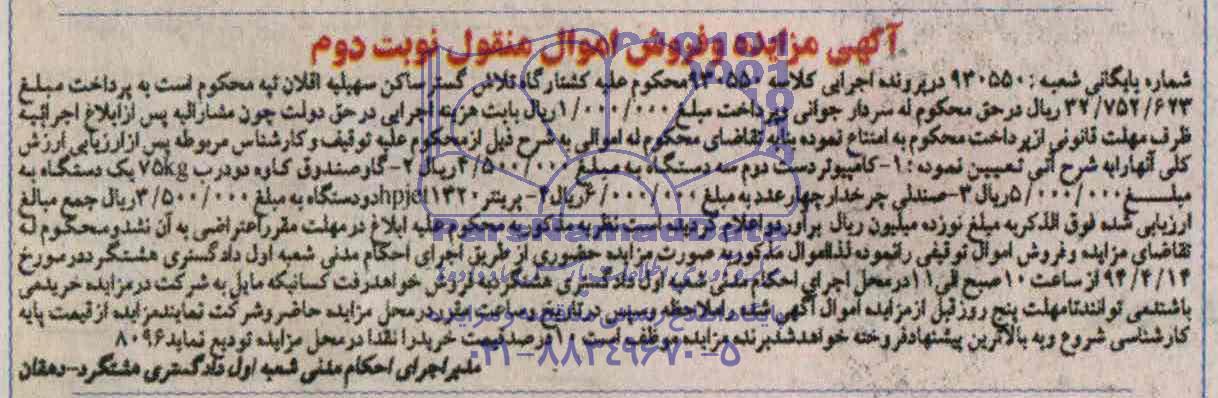 آگهی مزایده وفروش اموال منقول نوبت دوم
شماره بایگانی شعبه : ۹۳۰۵۵۰ درپرونده اجرایی کلاسه ۹۳۰۵۵۰ محکوم علیه کشتارگاه تلاش گستر ساکن سهیلیه اقلان تپه محکوم است به پرداخت مبلغ
۳۲/۷۵۲/۶۲۳ ریال درحق محکوم له سردار جوانی وپرداخت مبلغ ۱/۰۰۰/۰۰۰ ریال بابت هزینه اجرایی درحق دولت چون مشارالیه پس ازابلاغ اجرائیه
ظرف مهلت قانونی ازپرداخت محکوم به امتناع نموده بنابه تقاضای محکوم له اموالی به شرح ذیل ازمحکوم علیه توقیف وکارشناس مربوطه پس ازارزیابی ارزش
کلی آنهارابه شرح آتی تعیین نموده : ۱-کامپیوتر دست دوم سه دستگاه به مبلغ ۴/۵۰۰/۰۰۰ ریال ۲-گاوصندوق کاوه دودرب ۷۵kg یک دستگاه به
مبلغ ۵/۰۰۰/۰۰۰ ریال ۳-صندلی چرخدار چهار عدد به مبلغ ۶/۰۰۰/۰۰۰ ریال ۴-پرینتر hpjet۱۳۲۰ دودستگاه به مبلغ ۳/۵۰۰/۰۰۰ ریال جمع مبالغ
ارزیابی شده فوق الذکربه مبلغ نوزده میلیون ریال برآورد و اعلام گردیده است نظربه مذکوربه محکوم علیه ابلاغ درمهلت مقرراعتراضی به آن نشدومحکوم له
تقاضای مزایده وفروش اموال توقیفی رانموده لذااموال مذکوربه صورت مزایده حضوری از طریق اجرای احکام مدنی شعبه اول دادگستری هشتگرددرمورخ
۹۴/۴/۱۴ از ساعت ۱۰ صبح الی ۱۱ درمحل اجرای احکام مدنی شعبه اول دادگستری هشتگردبه فروش خواهدرفت کسانیکه مایل به شرکت درمزایده خریدمی
باشندمی توانندتامهلت پنج روزقبل ازمزایده اموال آگهی شده راملاحظه وسپس درتاریخ وساعت مقرردرمحل مزایده حاضروشرکت نمایندمزایده ازقیمت پایه
کارشناسی شروع وبه بالاترین پیشنهادفروخته خواهدشدبرنده مزایده موظف است ۱۰ درصدقیمت خریدرا نقدا درمحل مزایده تودیع نماید ۸۰۹۶
مدیراجرای احکام مدنی شعبه اول دادگستری هشتگرد-دهقان
ParsNamadData
۰۲۱-۸۸۳۴۹۶۷۰-۵